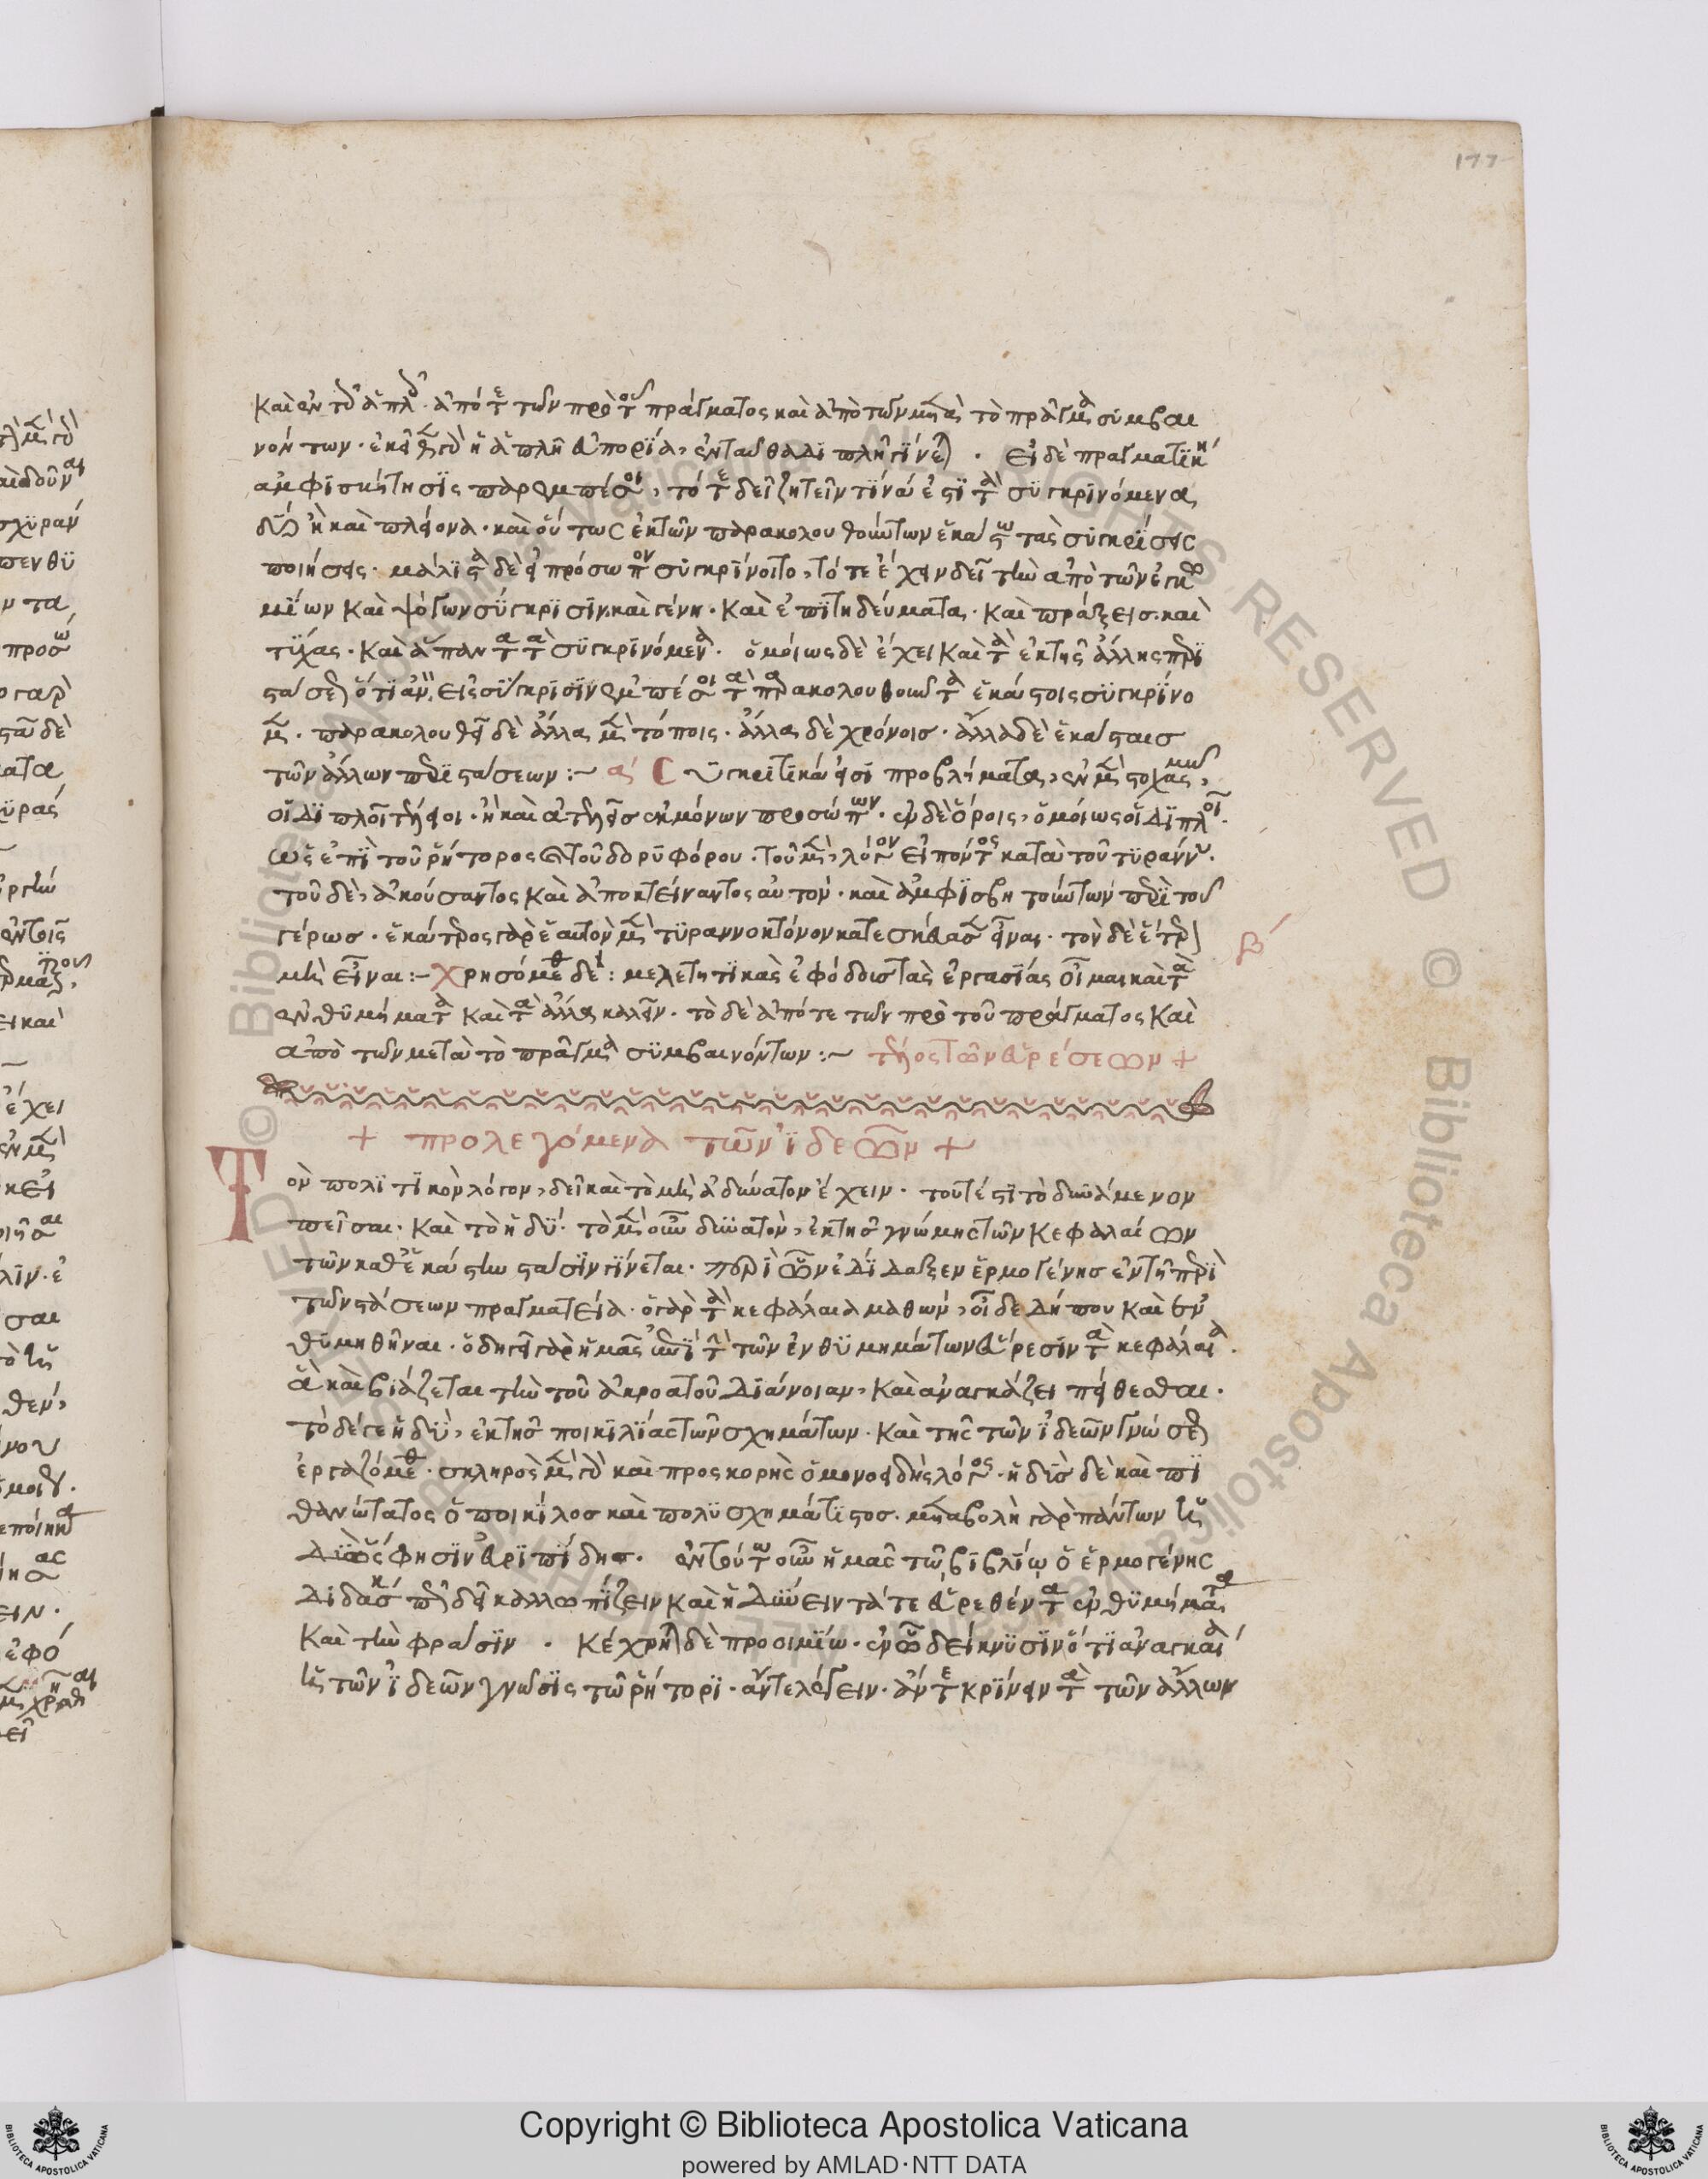 177
καὶ ἐν τῶ ἁπλῶ. ἀπό τε τῶν πρὸ τοῦ πράγματος καὶ ἀπὸ τῶν μετὰ τὸ πρᾶγμα συμβαι
νόντων. ἐκεῖ μὲν οὖν ἡ ἁπλῆ εὐπορία, ἐνταῦθα διπλῆ γίνεται. εἰ δὲ πραγματικὴ
ἀμφισβήτησις παρεμπέσοι, τό τε δεῖ ζητεῖν τίνα ἐστὶ τὰ συγκρινόμενα
δύο ἢ καὶ πλείονα. καὶ οὕτως ἐκ τῶν παρακολουθούντων ἑκάστω τὰς συγκρίσεις
ποιήσεις. μάλιστα δὲ εἰ πρόσωπον συγκρίνοιτο, τό τε ἔχειν δεῖ τὴν ἀπὸ τῶν ἐγκω
μίων καὶ ψόγων σύγκρισιν. καὶ γένη. καὶ ἐπιτηδεύματα. καὶ πράξεις. καὶ
τύχας. καὶ ἅπαντα τὰ συγκρινόμενα. ὁμοίως δὲ ἔχει καὶ τὰ ἐκ τῆς ἄλλης περι
στάσεως ὅτι ἂν εἰς σύγκρισιν ἐμπέσοι τὰ παρακολουθοῦντα ἑκάστοις συγκρίνο
μεν. παρακολουθεῖ δὲ ἄλλα μὲν τόποις. ἄλλα δὲ χρόνοις. ἄλλα δὲ ἑκάσταις
τῶν ἄλλων περιστάσεων :~ α΄ Συγκριτικὰ εἰσι προβλήματα, ἐν μὲν στοχασμῶ,
οἱ διπλοῖ τέλειοι. ἢ καὶ ἀτελεῖς ἐκ μόνων προσώπων. ἐν δὲ ὅροις, ὁμοίως οἱ διπλοῖ.
ὡς ἐπὶ τοῦ ῥήτορος καὶ τοῦ δορυφόρου. τοῦ μὲν, λόγον εἰπόντος κατὰ τοῦ τυράννου.
τοῦ δὲ, ἀκούσαντος καὶ ἀποκτείναντος αὐτόν. καὶ ἀμφισβητούντων περὶ τοῦ
γέρως. ἑκάτερος γὰρ ἑαυτὸν μὲν τυραννοκτόνον κατεσκεύασεν εἶναι. τὸν δὲ ἕτερον
β΄
μὴ εἶναι :~ χρησόμεθα δέ : μελετητικὰς ἐφόδους τὰς ἐργασίας οἶμαι καὶ τὰ
ἐνθυμήματα καὶ τὰ ἄλλα καλεῖν. τὸ δὲ ἀπό τε τῶν πρὸ τοῦ πράγματος καὶ
ἀπὸ τῶν μετὰ τὸ πρᾶγμα συμβαινόντων :~ τέλος τῶν εὑρέσεων +
+ προλεγόμενα τῶν ἰδεῶν +
Τὸν πολιτικὸν λόγον, δεῖ καὶ τὸ μὴ ἀδύνατον ἔχειν. τουτέστι τὸ δυνάμενον
πεῖσαι. καὶ τὸ ἡδύ. τὸ μὲν οὖν δυνατὸν, ἐκ τῆς γνώμης τῶν κεφαλαίων
τῶν καθ' ἑκάστην στάσιν γίνεται. περὶ ὧν ἐδίδαξεν ἑρμογένης ἐν τῆ περὶ
τῶν στάσεων πραγματεία. ὁ γὰρ τὰ κεφάλαια μαθών, οἶδε δήπου καὶ ἐν
θυμηθῆναι. ὁδηγεῖ γὰρ ἡμᾶς ἐπὶ τὴν τῶν ἐνθυμημάτων εὕρεσιν τὰ κεφάλαια.
ἃ καὶ βιάζεται τὴν τοῦ ἀκροατοῦ διάνοιαν, καὶ ἀναγκάζει πείθεσθαι.
τὸ δέ γε ἡδὺ, ἐκ τῆς ποικιλίας τῶν σχημάτων. καὶ τῆς τῶν ἰδεῶν γνώσεως
ἐργαζόμεθα. σκληρὸς μὲν οὖν καὶ προσκορὴς ὁ μονοειδὴς λόγος. ἡδὺς δὲ καὶ πι
θανώτατος ὁ ποικίλος καὶ πολυσχημάτιστος. μεταβολὴ γὰρ πάντων
φησὶν εὐριπίδης. ἐν τούτω οὖν ἡμᾶς τῶ βιβλίω ὁ ἑρμογένης
διδάσκει πῶς δεῖ καλλωπίζειν καὶ ἡδύνειν τά τε εὑρεθέντα ἐνθυμήματα
καὶ τὴν φράσιν. κέχρηται δὲ προοιμίω. ἐν ὧ δείκνυσιν ὅτι ἀναγκαία
τῶν ἰδεῶν γνῶσις τῶ ῥήτορι. ἄν τε λέγειν. ἄν τε κρίνειν τὰ τῶν ἄλλων
Copyright © Biblioteca Apostolica Vaticana
powered by AMLAD·NTT DATA